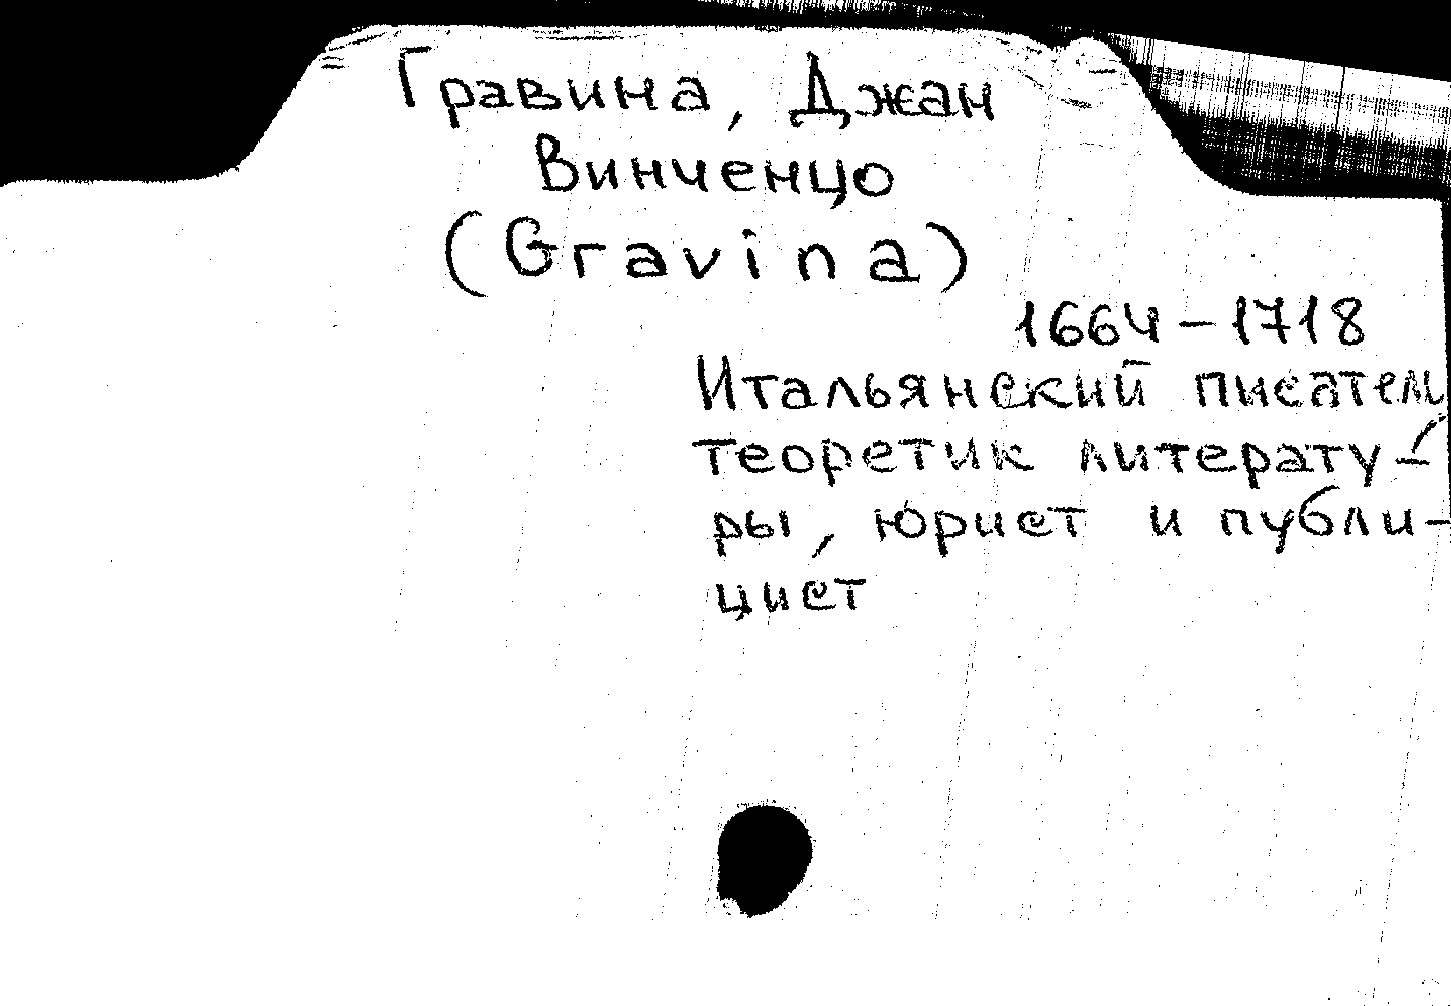 Гравина, Джан
Винченцо
(Gravina)
1664–1718
Итальянский писатель
теоретик литерату-
ры, юрист и публи-
цист